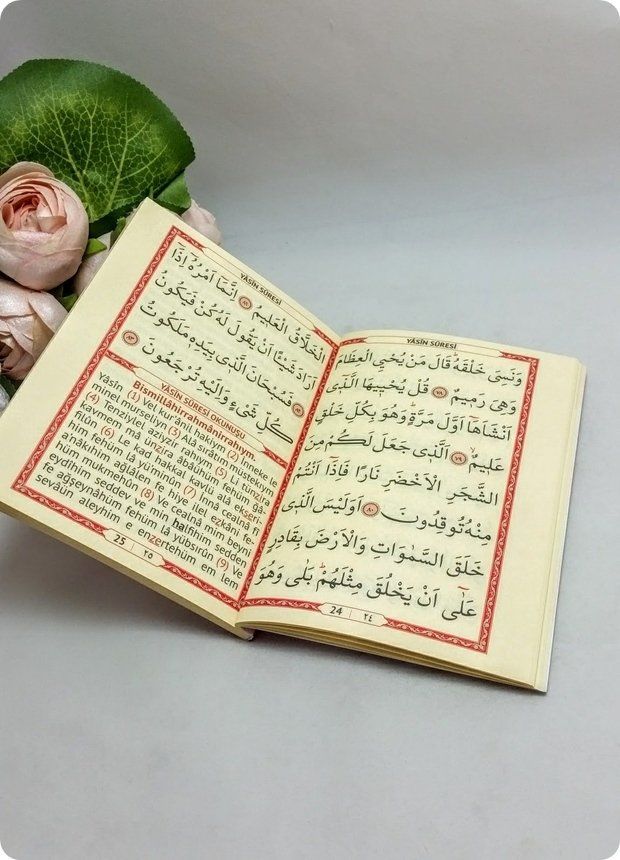 YÂSÎN SÛRESİ
وَنَسِىَ خَلْقَهُ قَالَ مَنْ يُحْيِى الْعِظَامَ
وَهِىَ رَمِيمٌ ٧٨ قُلْ يُحْيِيهَا الَّذِٓى
اَنْشَاَهَٓا اَوَّلَ مَرَّةٍ وَهُوَ بِكُلِّ خَلْقٍ
عَلِيمٌ ٧٩ اَلَّذِى جَعَلَ لَكُمْ مِنَ
الشَّجَرِ الْاَخْضَرِ نَارًا فَاِذَٓا اَنْتُمْ
مِنْهُ تُوقِدُونَ ٨٠ اَوَلَيْسَ الَّذِى
خَلَقَ السَّمٰوَاتِ وَالْاَرْضَ بِقَادِرٍ
عَلٰٓى اَنْ يَخْلُقَ مِثْلَهُمْ بَلٰى وَهُوَ
24 | ٢٤
YÂSÎN SÛRESİ
الْخَلَّاقُ الْعَلِيمُ ٨١ اِنَّمَٓا اَمْرُهُٓ اِذَٓا
اَرَادَ شَيْئًا اَنْ يَقُولَ لَهُ كُنْ فَيَكُونُ
٨٢ فَسُبْحَانَ الَّذِى بِيَدِهِ مَلَكُوتُ
كُلِّ شَىْءٍ وَاِلَيْهِ تُرْجَعُونَ ٨٣
YÂSÎN SÛRESİ OKUNUŞU
Bismillâhirrahmânirrahym.
Yâsîn (1) Vel kur'ânil hakiym (2) İnneke le
minel murseliyn (3) Alâ sırâtın müstekıym
(4) Tenziylel aziyzir rahym (5) Li tunzira
kavmem mâ unzira âbâühüm fehüm gâ-
filûn (6) Le kad hakkal kavlü alâ ekseri-
him fehüm lâ yü'minûn (7) İnnâ cealnâ fî
a'nâkıhim ağlâlen fe hiye ilel ezkâni fe-
hüm mukmehûn (8) Ve cealnâ mim beyni
eydîhim seddev ve min halfihim sedden
fe ağşeynâhüm fehüm lâ yübsırûn (9) Ve
sevâün aleyhim e enzertehüm em lem
25 | ٢٥